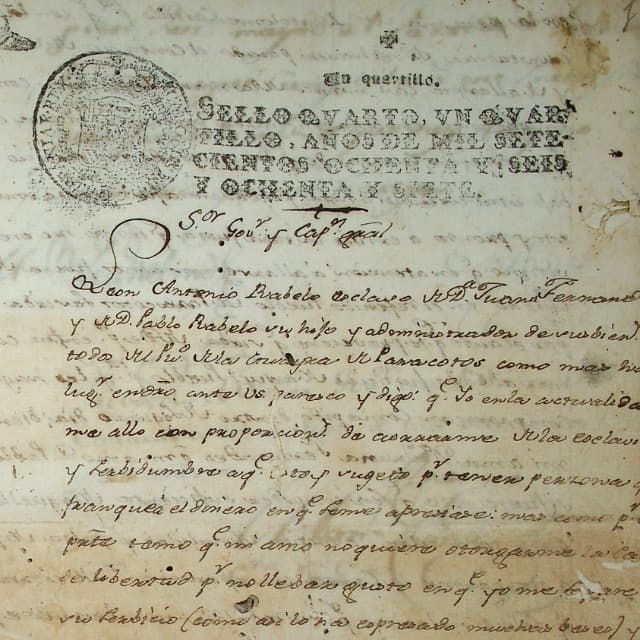 Un quartillo.
SELLO QVARTO, VN QVAR-
TILLO, AÑOS DE MIL SETE-
CIENTOS OCHENTA Y SEIS
Y OCHENTA Y SIETE.
S.or Gov.r y Cap.n gral
Leon Antonio Rabelo esclavo de D.n Juan Fernan
y de D. Pablo Rabelo su hijo y administrador de sus bien
todo del de la de Paracotos como mas
lug.r en dro ante vs. paresco y digo: q.e Yo en la actualida
me allo con proporcion de de la esclav
y serbidumbre a q.e estoy sugeto p.r tener perzona q
franquea el dinero en q.e seme apresiase: mas como p.r
prte temo q.e mi amo no quiere otorgarme la Ca
de libertad p.r no llebar gusto en q.e yo me
su serbicio (como asi lo ha espresado muchas beses)